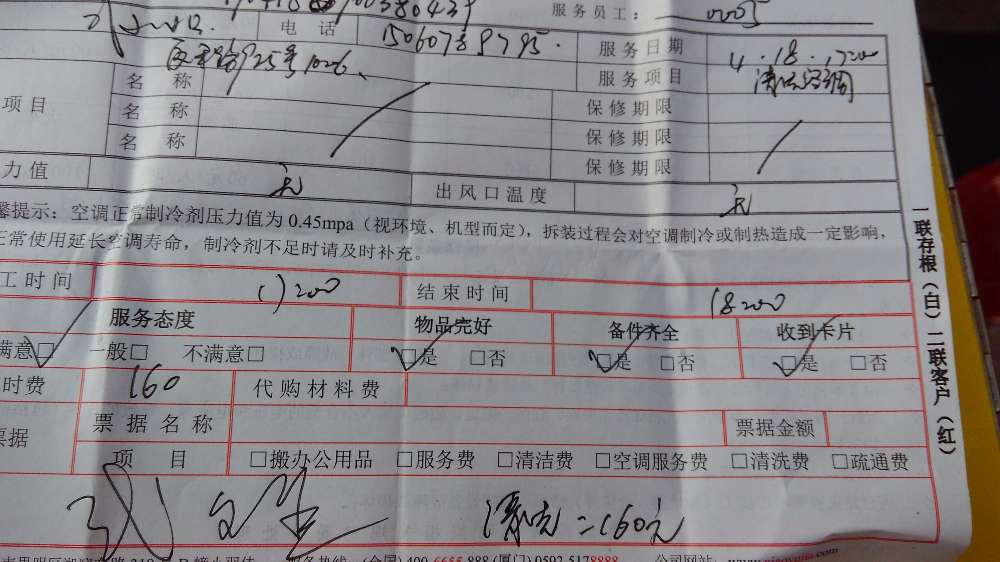 服务员工： 0005
电话 服务日期 4.18.
名称 服务项目 清洗空调
项目 名称 保修期限
名称 保修期限
保修期限
力值 无 出风口温度 无
馨提示：空调正常制冷剂压力值为 0.45mpa（视环境、机型而定），拆装过程会对空调制冷或制热造成一定影响，
正常使用延长空调寿命，制冷剂不足时请及时补充。
工时间 结束时间
服务态度 物品完好 备件齐全 收到卡片
满意□ 一般□ 不满意□ □是 □否 □是 □否 □是 □否
时费 160 代购材料费
票据 票据名称 票据金额
项目 □搬办公用品 □服务费 □清洁费 □空调服务费 □清洗费 □疏通费
清洗=160元
服务热线 (全国) 400-6655 888 (厦门) 0592 5178888 公司网站：
一联存根（白）二联客户（红）